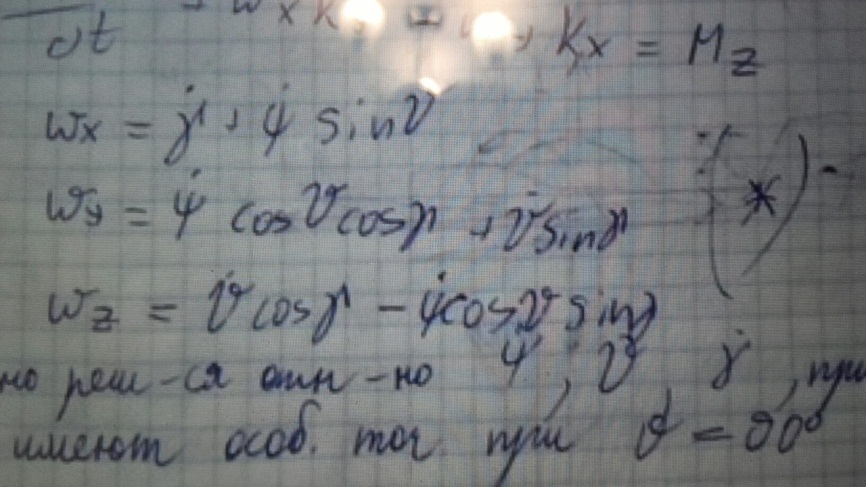 dt + ω x K = M
, Kx = Mz
ωx = γ̇ + ψ̇ sin ϑ
ωy = ψ̇ cos ϑ cos γ + ϑ̇ sin γ
(*)
ωz = ϑ̇ cos γ − ψ̇ cos ϑ sin γ
но реш-ся отн-но ψ̇, ϑ̇, γ̇, при
имеют особ. точ. при ϑ = 90°